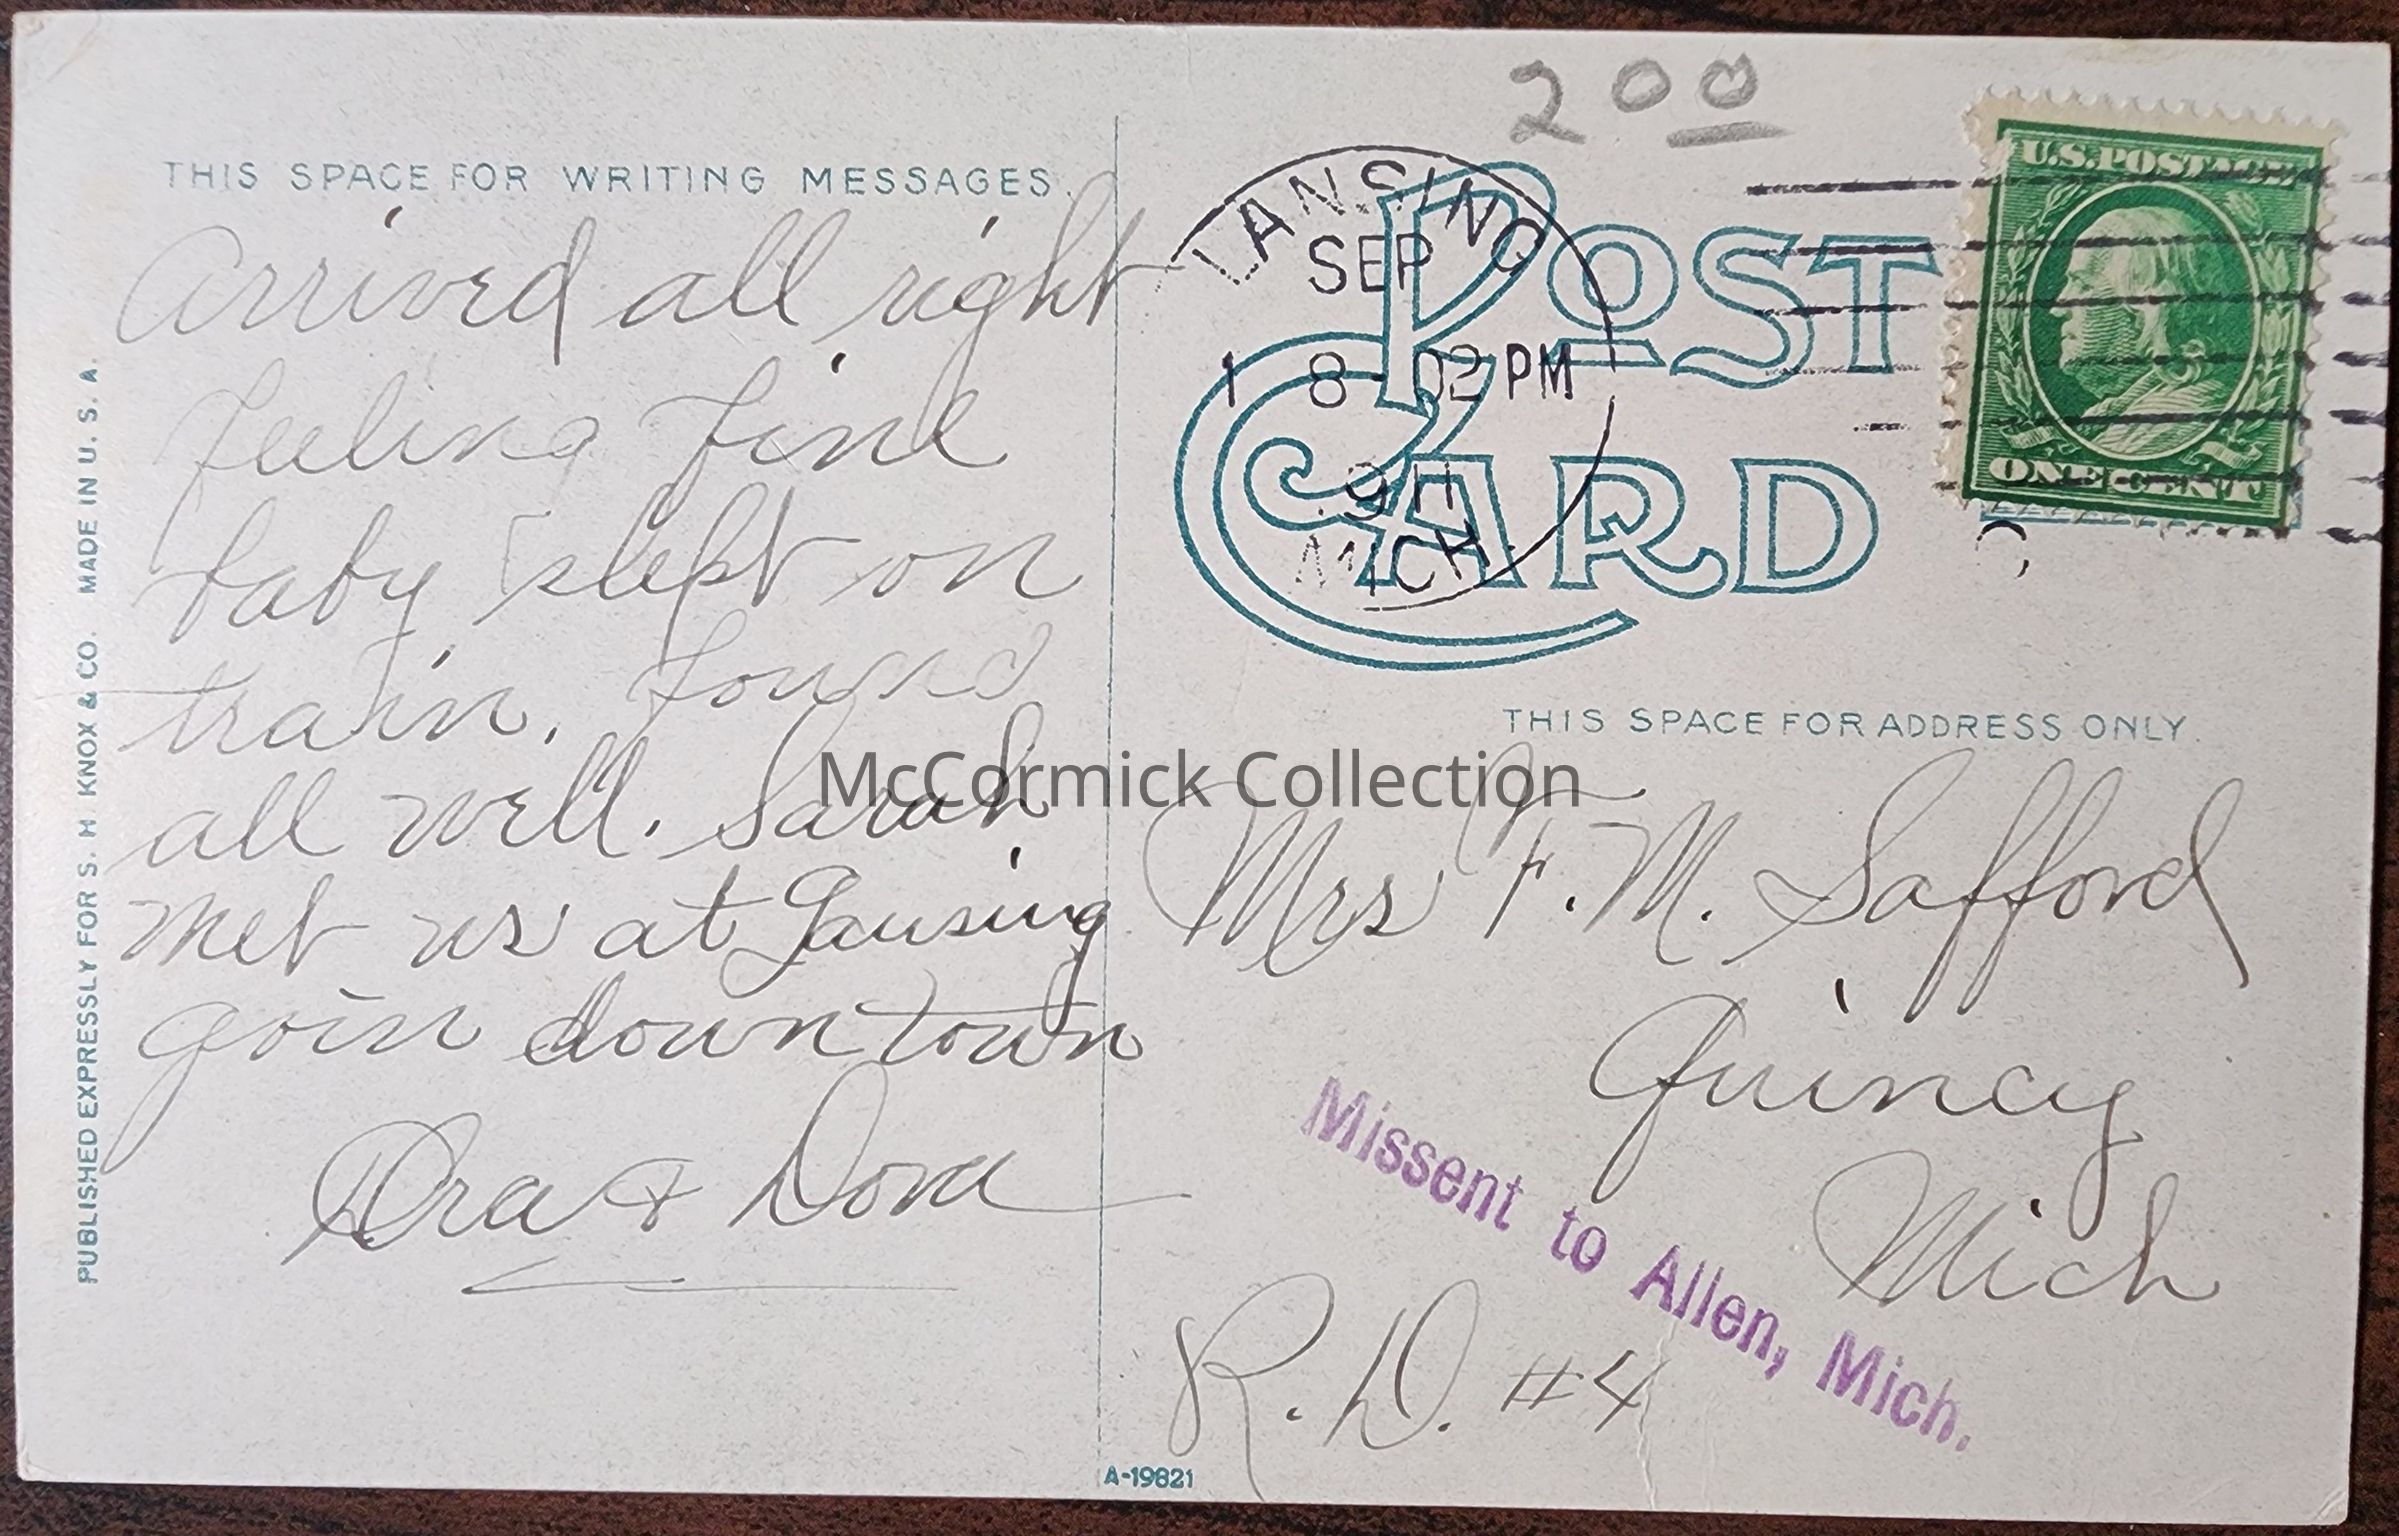 200
THIS SPACE FOR WRITING MESSAGES.
Arrived all right
feeling fine
baby slept on
train. found
all well. Sarah
met us at Lansing
goin down town
Ora & Dora
PUBLISHED EXPRESSLY FOR S. H. KNOX & CO. MADE IN U. S. A.
POST
CARD
LANSING
SEP
1 8-02 PM
1911
MICH.
U.S. POSTAGE
ONE CENT
THIS SPACE FOR ADDRESS ONLY.
Mrs F. M. Safford
Quincy
Mich
R. D. #4
Missent to Allen, Mich.
A-19821
McCormick Collection